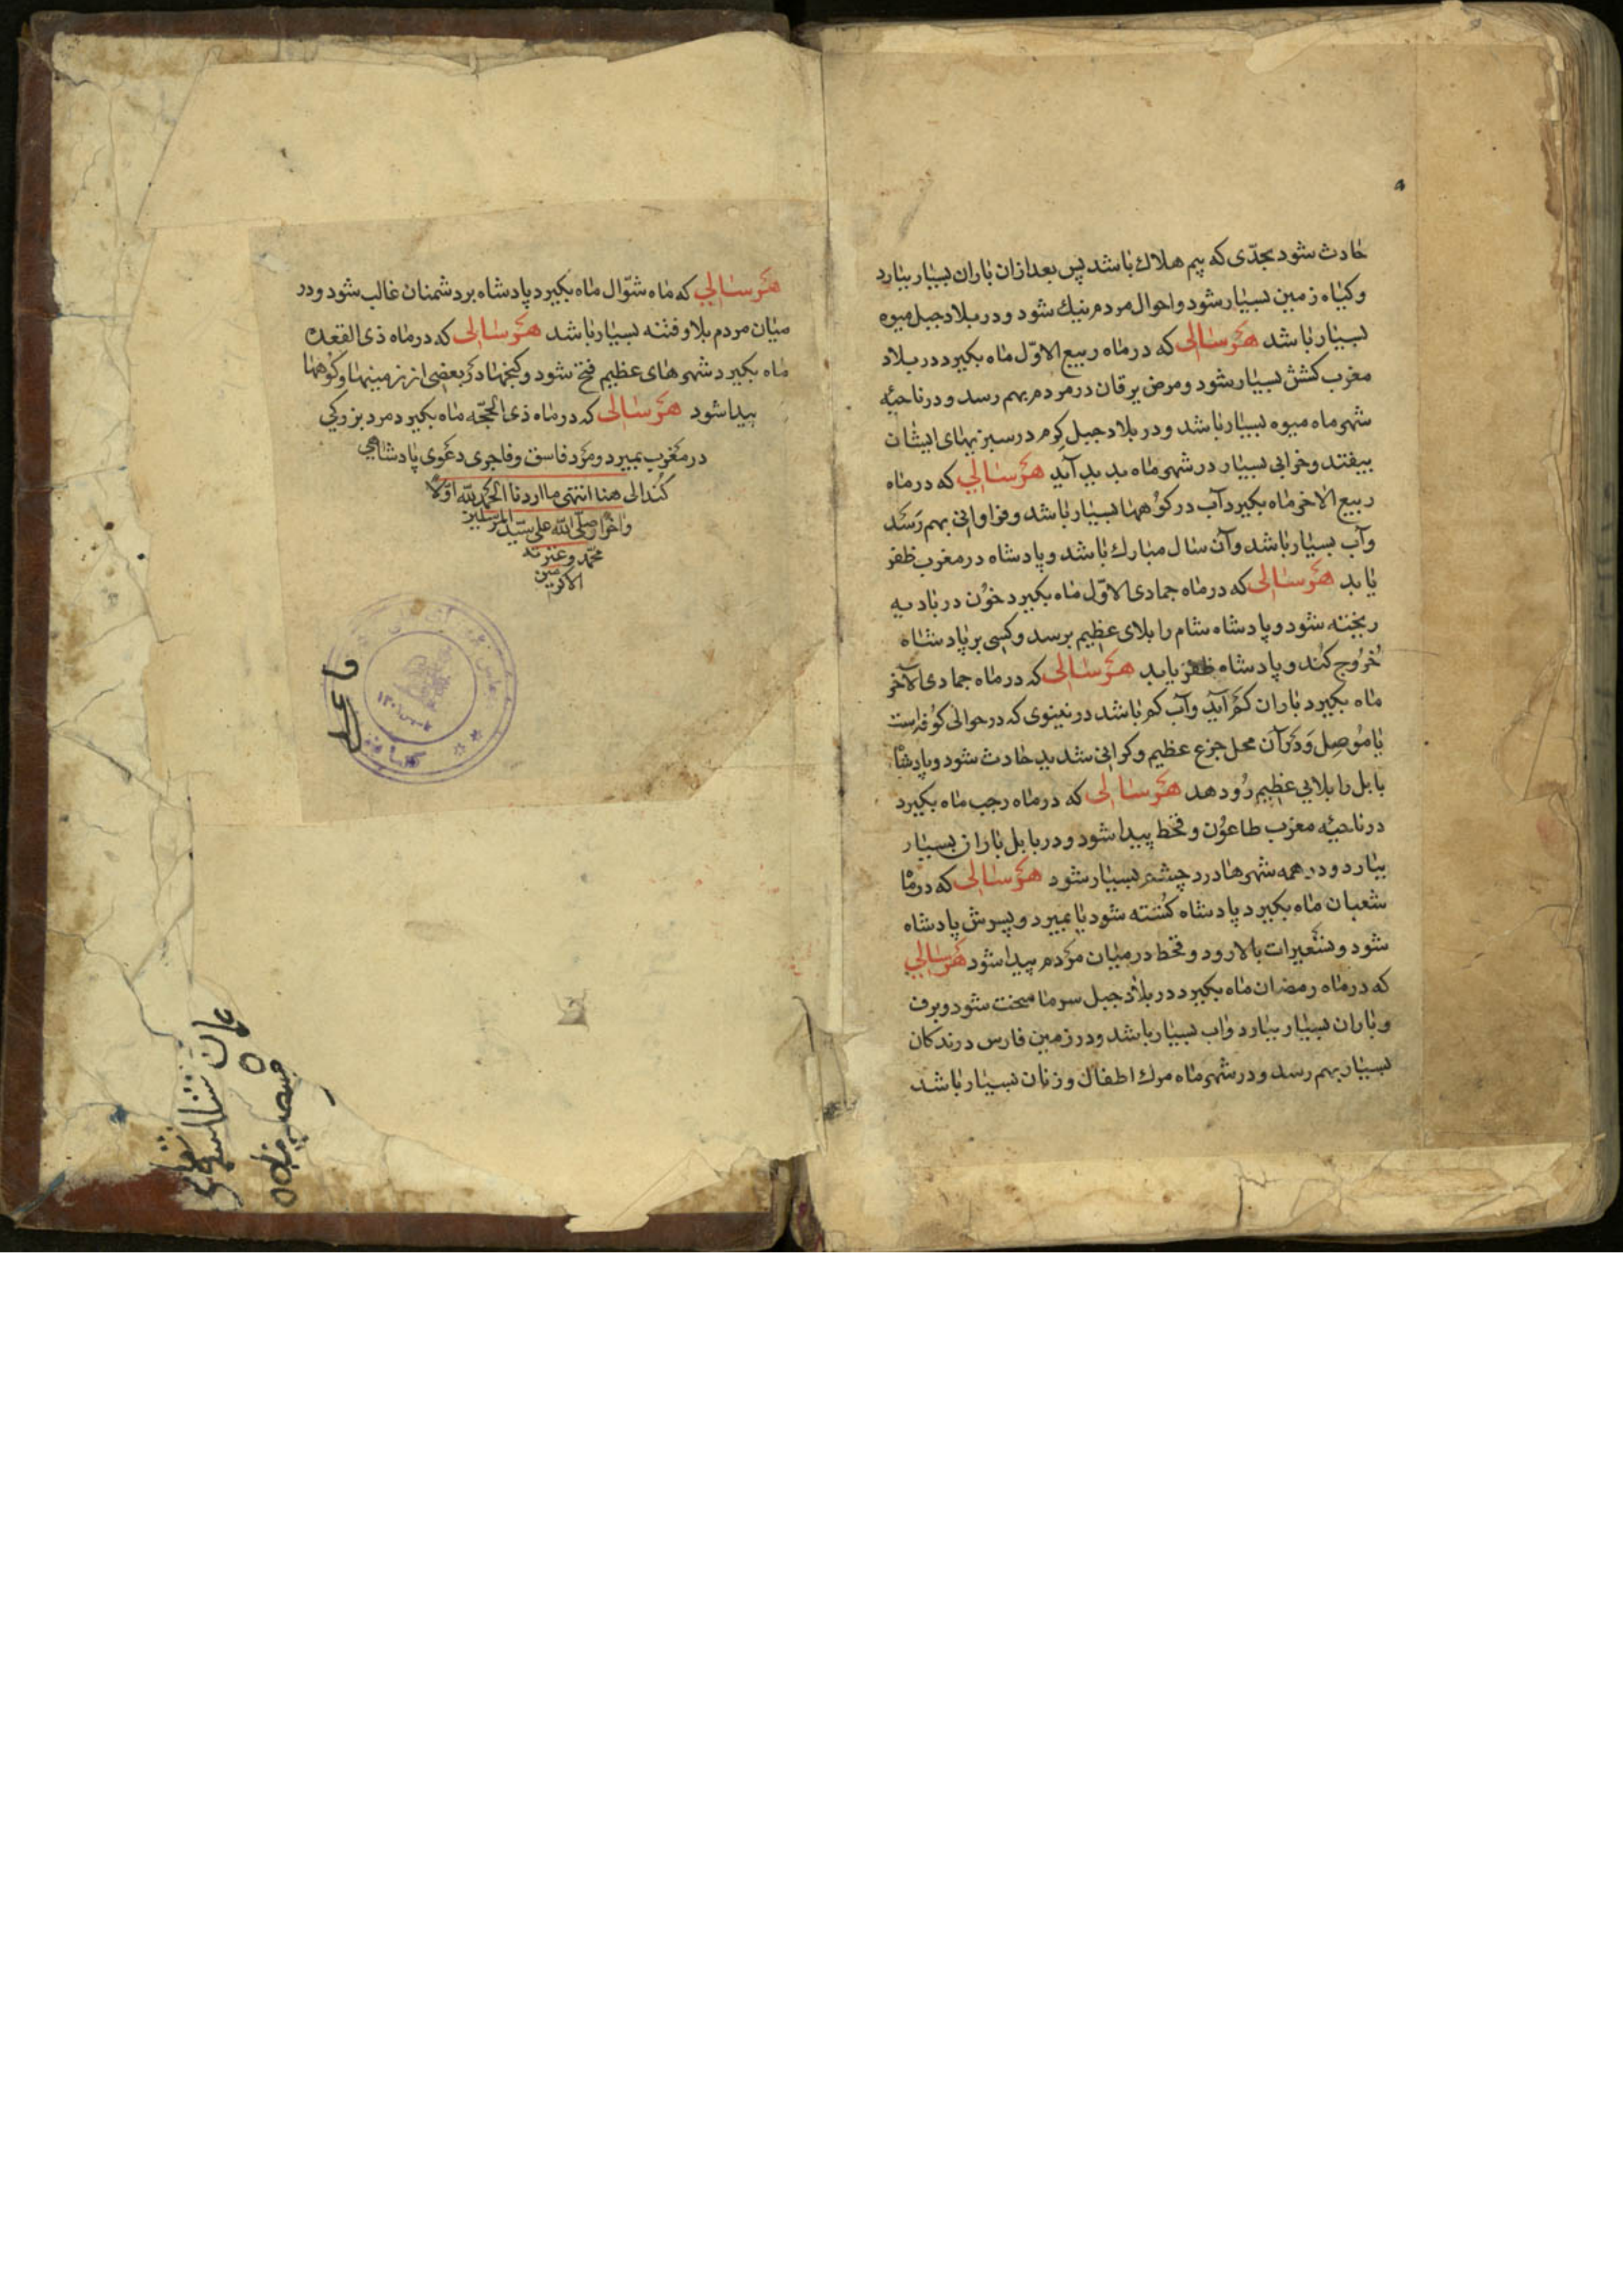 حادث شود بجدّی که بیم هلاك باشد پس بعد ازان باران بسیار ببارد
وکیاه زمین بسیار شود واحوال مردم نیك شود ودر بلاد جبل میوه
بسیار باشد هر سالی که در ماه ربیع الاوّل ماه بکیرد در بلاد
مغرب کشش بسیار شود ومرض یرقان در مردم بهم رسد ودر ناحیۀ
شهر ماه میوه بسیار باشد ودر بلاد جبل کرم در سبزیهای ایشان
بیفتد وخرابی بسیار در شهر ماه بدید آید هر سالی که در ماه
ربیع الاخر ماه بکیرد آب در کوهها بسیار باشد وفراوانی بهم رسد
وآب بسیار باشد وآن سال مبارك باشد وپادشاه در مغرب ظفر
یابد هر سالی که در ماه جمادی الاوّل ماه بکیرد خون در بادیه
ریخته شود وپادشاه شام را بلای عظیم برسد وکسی بر پادشاه
خروج کند وپادشاه ظفر یابد هر سالی که در ماه جمادی الآخر
ماه بکیرد باران کم آید وآب کم باشد در نینوی که در حوالی کوفه است
یا موصل ودر آن محل جزع عظیم وکرانی شدید حادث شود وپادشاه
بابل را بلایی عظیم رو دهد هر سالی که در ماه رجب ماه بکیرد
در ناحیۀ مغرب طاعون وقحط پیدا شود ودر بابل باران بسیار
ببارد ودر همه شهرها درد چشم بسیار شود هر سالی که در ماه
شعبان ماه بکیرد پادشاه کشته شود یا بمیرد وپسرش پادشاه
شود وتسعیرات بالا رود وقحط در میان مردم پیدا شود هر سالی
که در ماه رمضان ماه بکیرد در بلاد جبل سرما سخت شود وبرف
وباران بسیار ببارد واب بسیار باشد ودر زمین فارس درندکان
بسیار بهم رسد ودر شهر ماه مرك اطفال وزنان بسیار باشد
هر سالی که ماه شوّال ماه بکیرد پادشاه بر دشمنان غالب شود ودر
میان مردم بلا وفتنه بسیار باشد هر سالی که در ماه ذی القعده
ماه بکیرد شهرهای عظیم فتح شود وکنجها در بعضی از زمینها وکوهها
پیدا شود هر سالی که در ماه ذی الحجّه ماه بکیرد مرد بزرکی
در مغرب بمیرد ومرد فاسق وفاجری دعوی پادشاهی
کند الی هنا انتهی ما اردنا الحمد لله اوّلا
واخرا وصلّی الله علی سیّد المرسلین
محمّد وعترته
الاکرمین